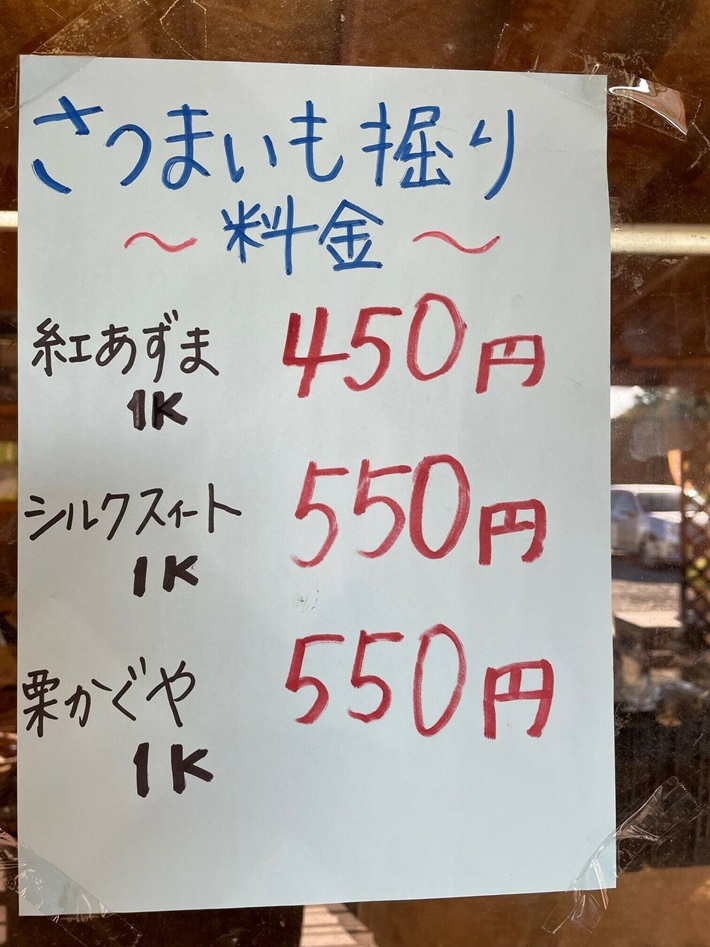 さつまいも掘り
〜料金〜
紅あずま 450円
1K
シルクスィート 550円
1K
栗かぐや 550円
1K